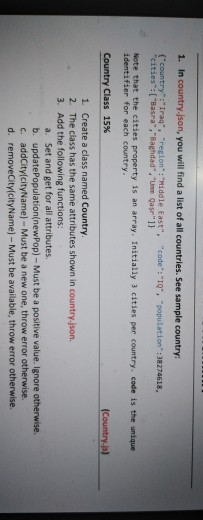 1. In country.json, you will find a list of all countries. See sample country:
{"country":"Iraq", "region":"Middle East", "code":"IQ", "population":38274618,
"cities":["Basra", "Baghdad", "Umm Qasr"]}
Note that the cities property is an array. Initially 3 cities per country. code is the unique
identifier for each country.
Country Class 15% (Country.js)
1. Create a class named Country.
2. The class has the same attributes shown in country.json.
3. Add the following functions:
a. Set and get for all attributes.
b. updatePopulation(newPop) – Must be a positive value. Ignore otherwise.
c. addCity(cityName) – Must be a new one, throw error otherwise.
d. removeCity(cityName) – Must be available, throw error otherwise.